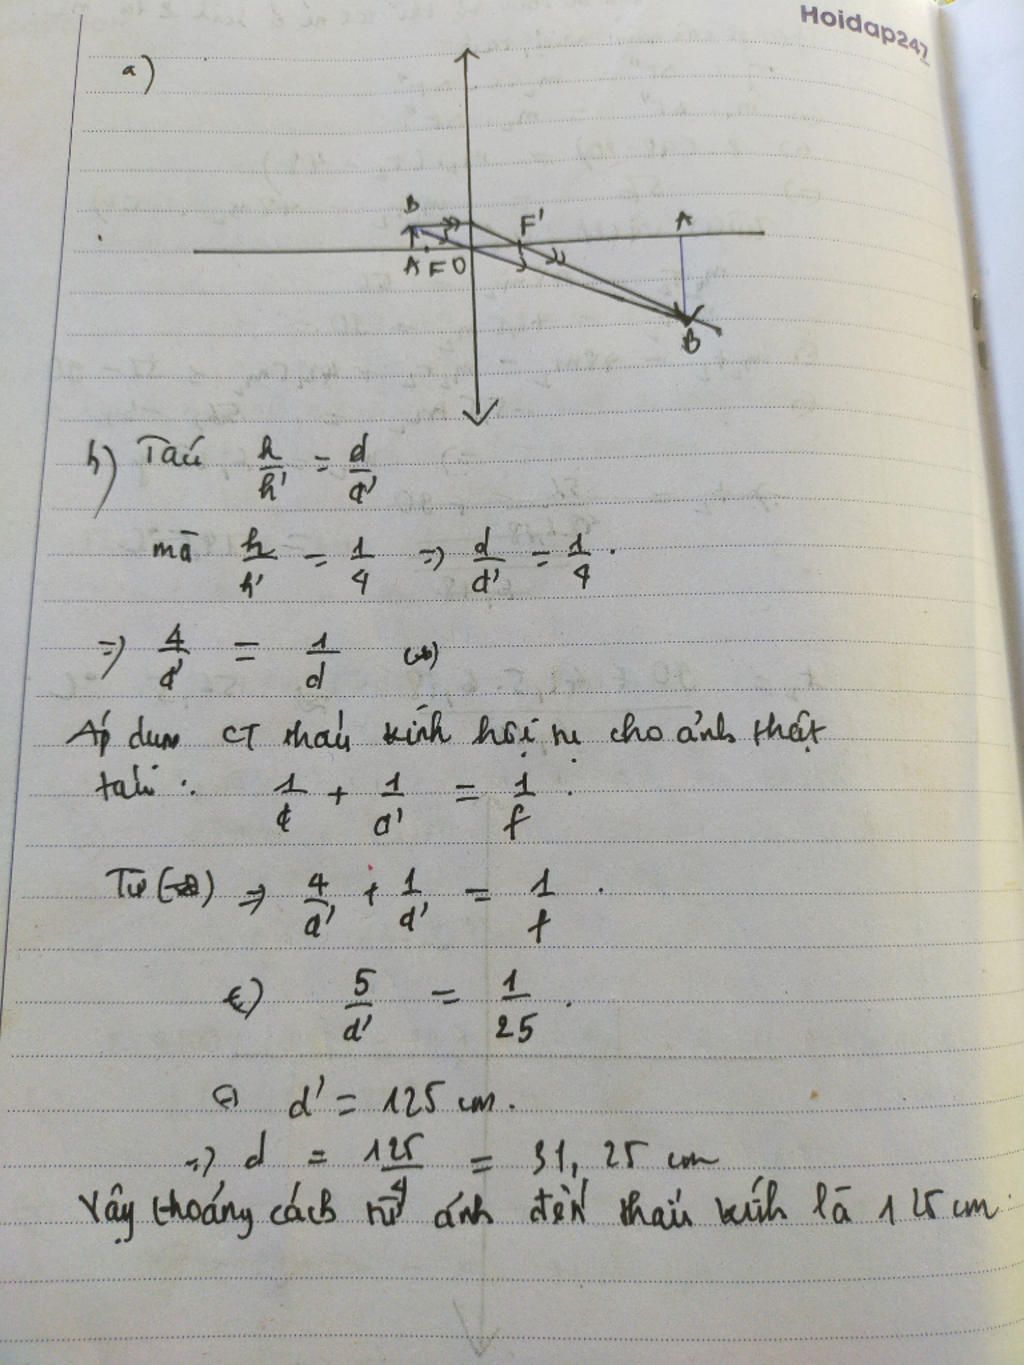 Hoidap247
a)
B F' A
A F O
B
b) Ta có h/h' = d/d'
mà h/h' = 1/4 => d/d' = 1/4.
=> 4/d' = 1/d (*)
Áp dụng CT thấu kính hội tụ cho ảnh thật
1/d + 1/d' = 1/f.
Từ (*) => 4/d' + 1/d' = 1/f.
5/d' = 1/25.
d' = 125 cm.
=> d = 125/4 = 31,25 cm
Vậy khoảng cách từ ảnh đến thấu kính là 125 cm